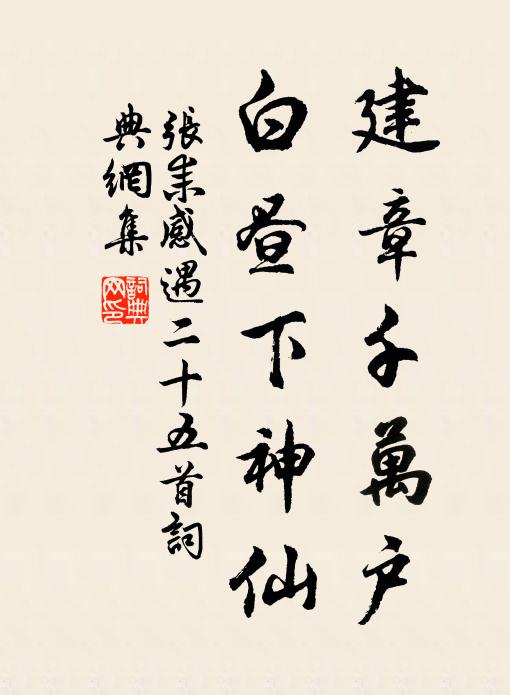 建章千萬户
白昼下神仙
張耒感遇二十五首詞
典網集
詞典网印